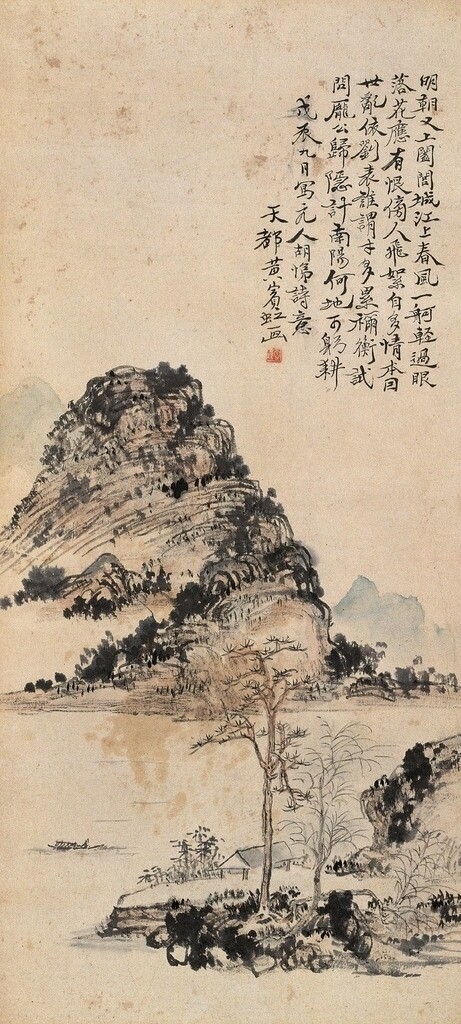 明朝又上闔閭城江上春風一舸輕過眼
落花應有恨傍人飛絮自多情本因
世亂依劉表誰謂才多累禰衡試
問龐公歸隱計南陽何地可躬耕
戊辰九月寫元人胡惟詩意
天都黃賓虹画